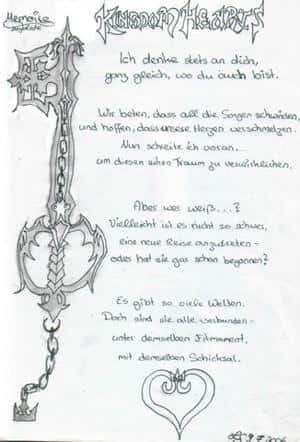 Memoire
KINGDOM HEARTS
Ich denke stets an dich,
ganz gleich, wo du auch bist.
Wir beten, dass all die Sorgen schwinden,
und hoffen, dass unsere Herzen verschmelzen.
Nun schreite ich voran...
um diesen schen Traum zu verwirklichen.
Aber wer weiß...?
Vielleicht ist es nicht so schwer,
eine neue Reise anzutreten -
oder hat sie gar schon begonnen?
Es gibt so viele Welten.
Doch sind sie alle verbunden -
unter demselben Firmament,
mit demselben Schicksal.